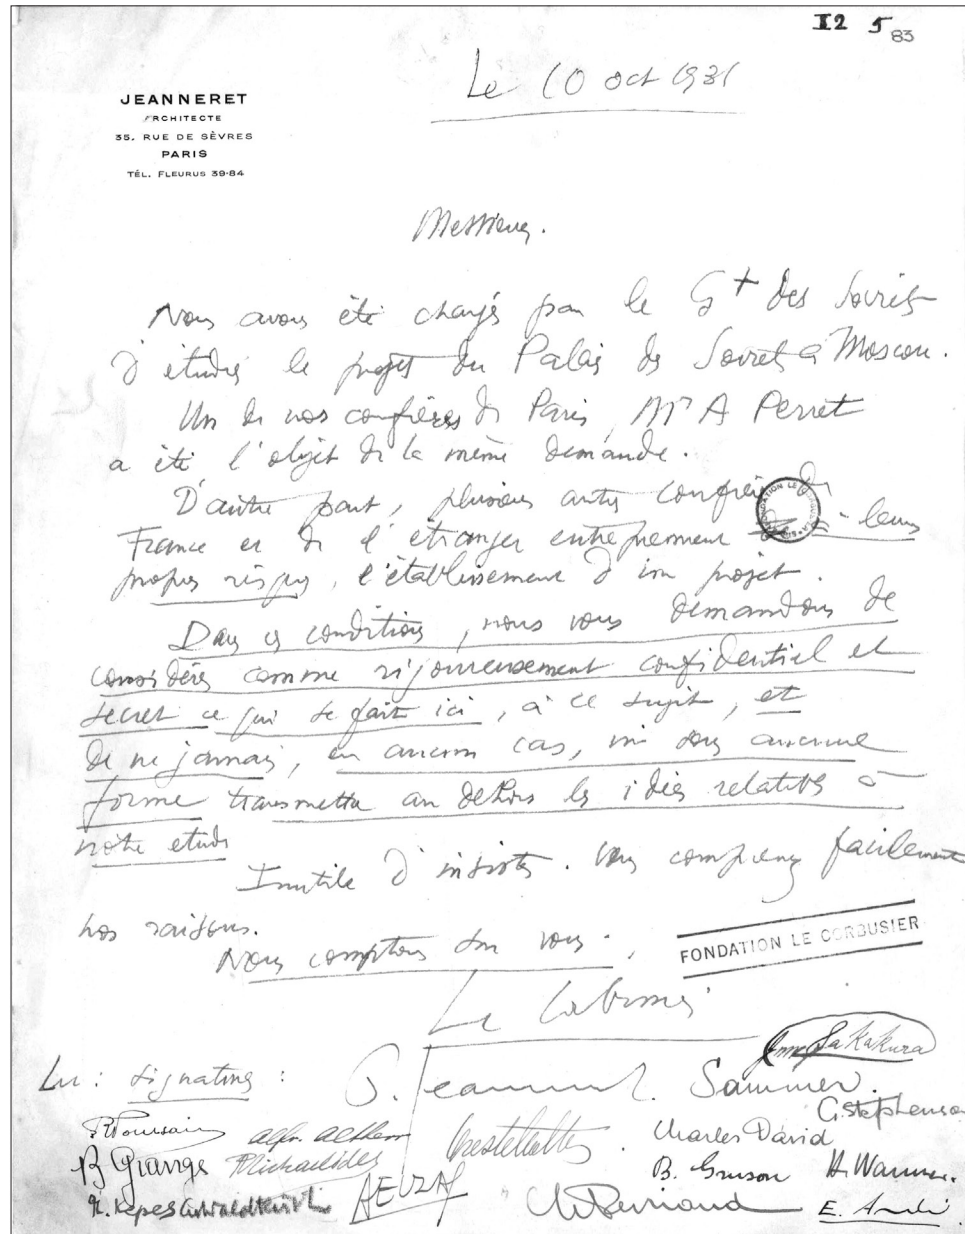 I2 5 83
Le 10 oct 1931
JEANNERET
ARCHITECTE
35, RUE DE SÈVRES
PARIS
TÉL. FLEURUS 39-84
Messieurs.
Nous avons été chargés par le Gt des Soviets
d'étudier le projet du Palais des Soviets à Moscou.
Un de nos confrères de Paris, Mr A Perret
a été l'objet de la même demande.
D'autre part, plusieurs autres confrères de
France et de l'étranger entreprennent à leurs
propres risques, l'établissement d'un projet.
Dans ces conditions, nous vous demandons de
considérer comme rigoureusement confidentiel et
secret ce qui se fait ici, à ce sujet, et
de ne jamais, en aucun cas, ni sous aucune
forme transmettre au dehors les idées relatives à
notre étude
Inutile d'insister. Vous comprenez facilement
nos raisons.
Nous comptons sur vous.
FONDATION LE CORBUSIER
Le Corbusier
Lu: signatures:
P. Jeanneret.
Sammer.
Sakakura
G. Stephenson
Charles David
B. Grange
Michaelides
B. Gruson
H. Wanner.
G. Kepes
AEUZAF
Ch Perriand